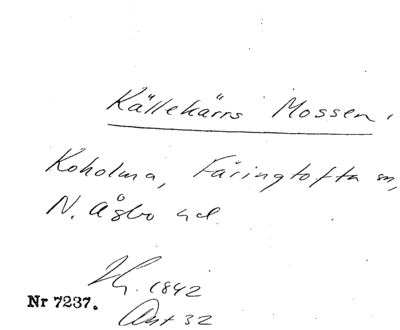 Källekärrs Mossen,
Koholma, Färingtofta sn,
N. Åsbo hd.
Hy. 1842
Nr 7237.
Akt 32